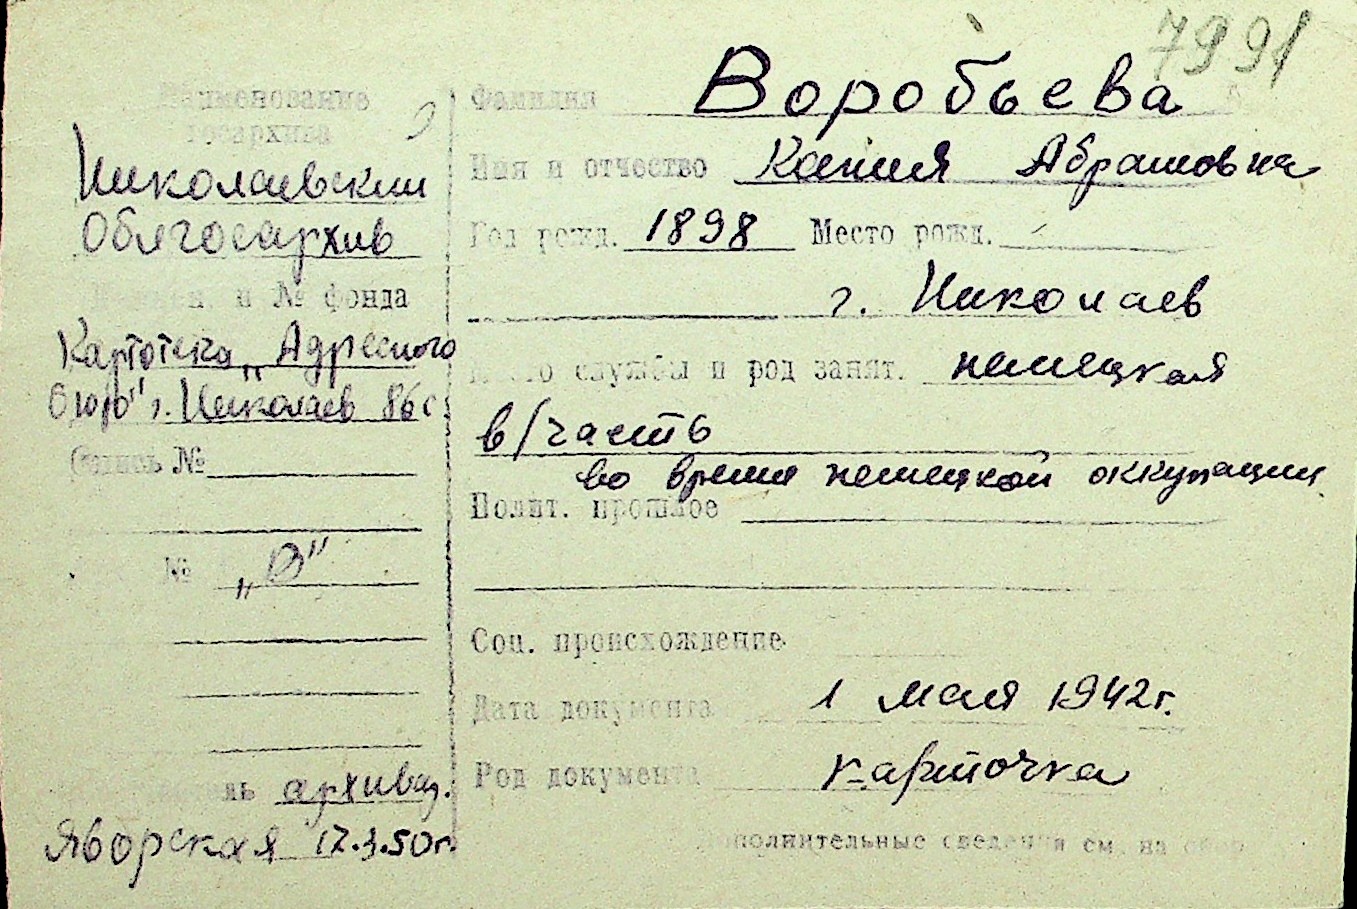 7991
Наименование
госархива
Николаевский
Облгосархив
Наимен. и № фонда
Картотека „Адресного
бюро" г. Николаев 86 с.
Опись №
№ „В"
архивар.
Яворская 17.3.50г.
Фамилия Воробьева
Имя и отчество Капия Абрамовна
Год рожд. 1898 Место рожд.
г. Николаев
Место службы и род занят. немецкая
в/часть
во время немецкой оккупации
Полит. прошлое
Соц. происхождение
Дата документа 1 мая 1942г.
Род документа карточка
Дополнительные сведения см. на обор.